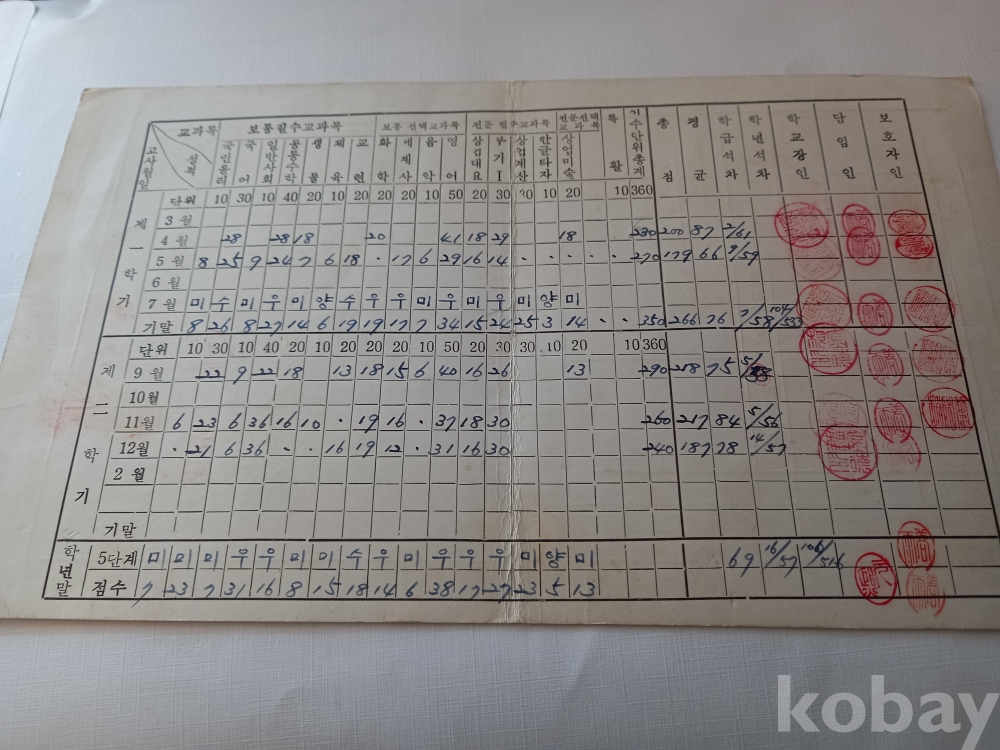 교과목 보통필수교과목 보통 선택교과목 전문 필수교과목 전문선택교과목 특활 이수단위총계 총점 평균 학급석차 학년석차 학교장인 담임인 보호자인
고사월일 성적 국민윤리 국어 일반사회 공통수학 생물 체육 교련 화학 세계사 음악 영어 상업대요 부기I 상업계산 한글타자 상업미술
제一학기
단위 10 30 10 40 20 10 20 20 20 10 50 20 30 30 10 20 10 360
3월
4월 28 28 18 20 41 18 29 18 230 200 87 2/61
5월 8 25 9 24 7 6 18 · 17 6 29 16 14 · · · · · 270 179 66 9/59
6월
7월 미 수 미 우 미 양 수 우 우 미 우 미 우 미 양 미
기말 8 26 8 27 14 6 19 19 17 7 34 15 24 25 3 14 · · 350 266 76 7/58 104/533
제二학기
단위 10 30 10 40 20 10 20 20 20 10 50 20 30 30 10 20 10 360
9월 22 9 22 18 13 18 15 6 40 16 26 13 290 218 75
10월
11월 6 23 6 36 16 10 · 19 16 · 37 18 30 260 217 84 5/56
12월 · 21 6 36 · · 16 19 12 · 31 16 30 240 187 78 14/57
2월
기말
학년말
5단계 미 미 미 우 우 미 미 수 우 미 우 우 우 미 양 미 69 16/57
점수 7 23 7 31 16 8 15 18 14 6 38 17 27 23 5 13
kobay